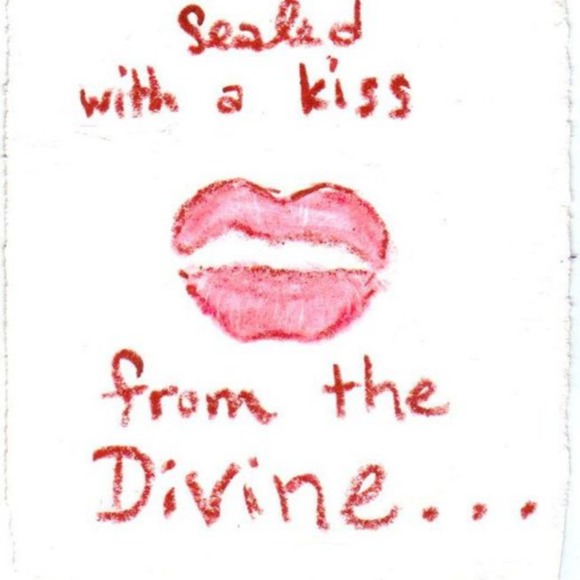 Sealed
with a kiss
from the
Divine...